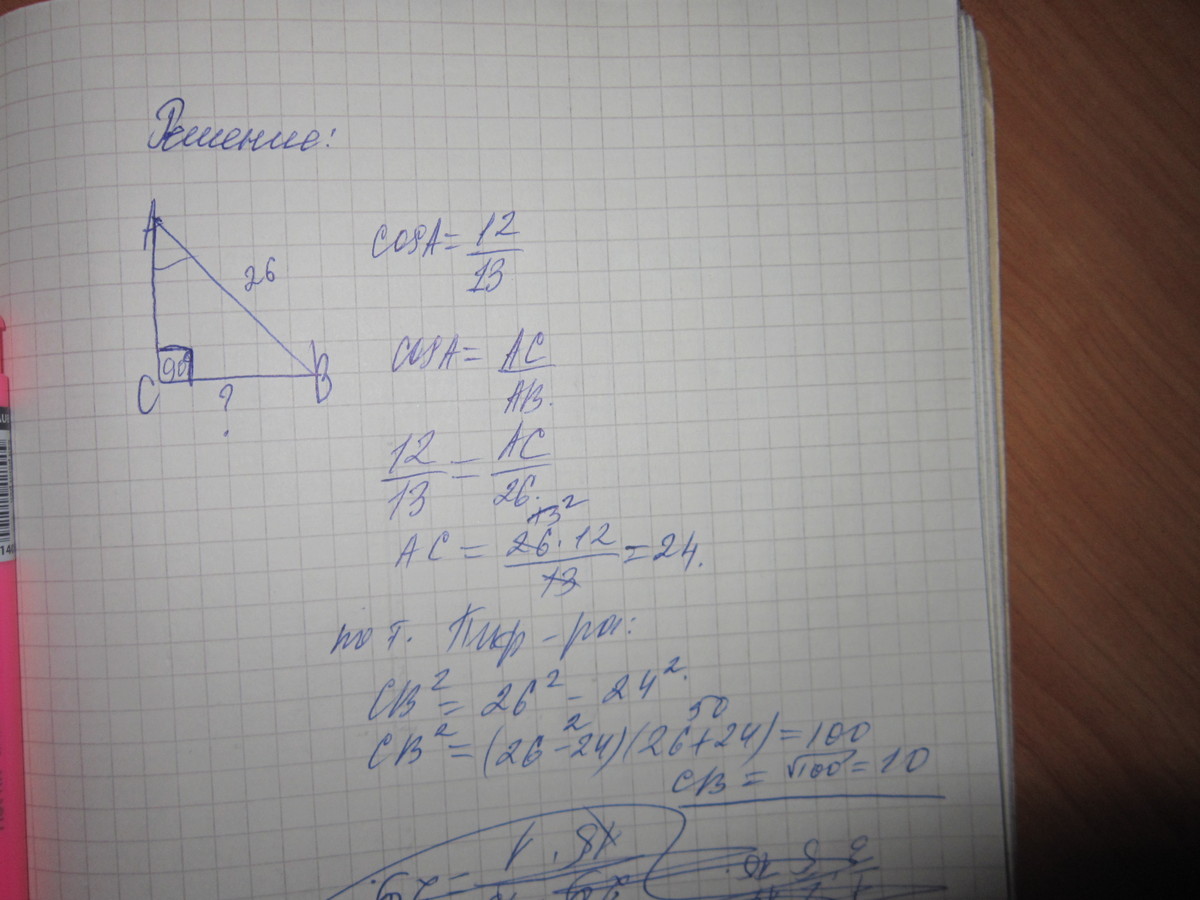 Решение:
A
26
90
C
B
?
cosA = 12/13
cosA = AC/AB.
12/13 = AC/26.
13 2
AC = 26·12/13 = 24.
по т. Пиф-ра:
CB² = 26² - 24².
2 50
CB² = (26-24)(26+24) = 100
CB = √100 = 10